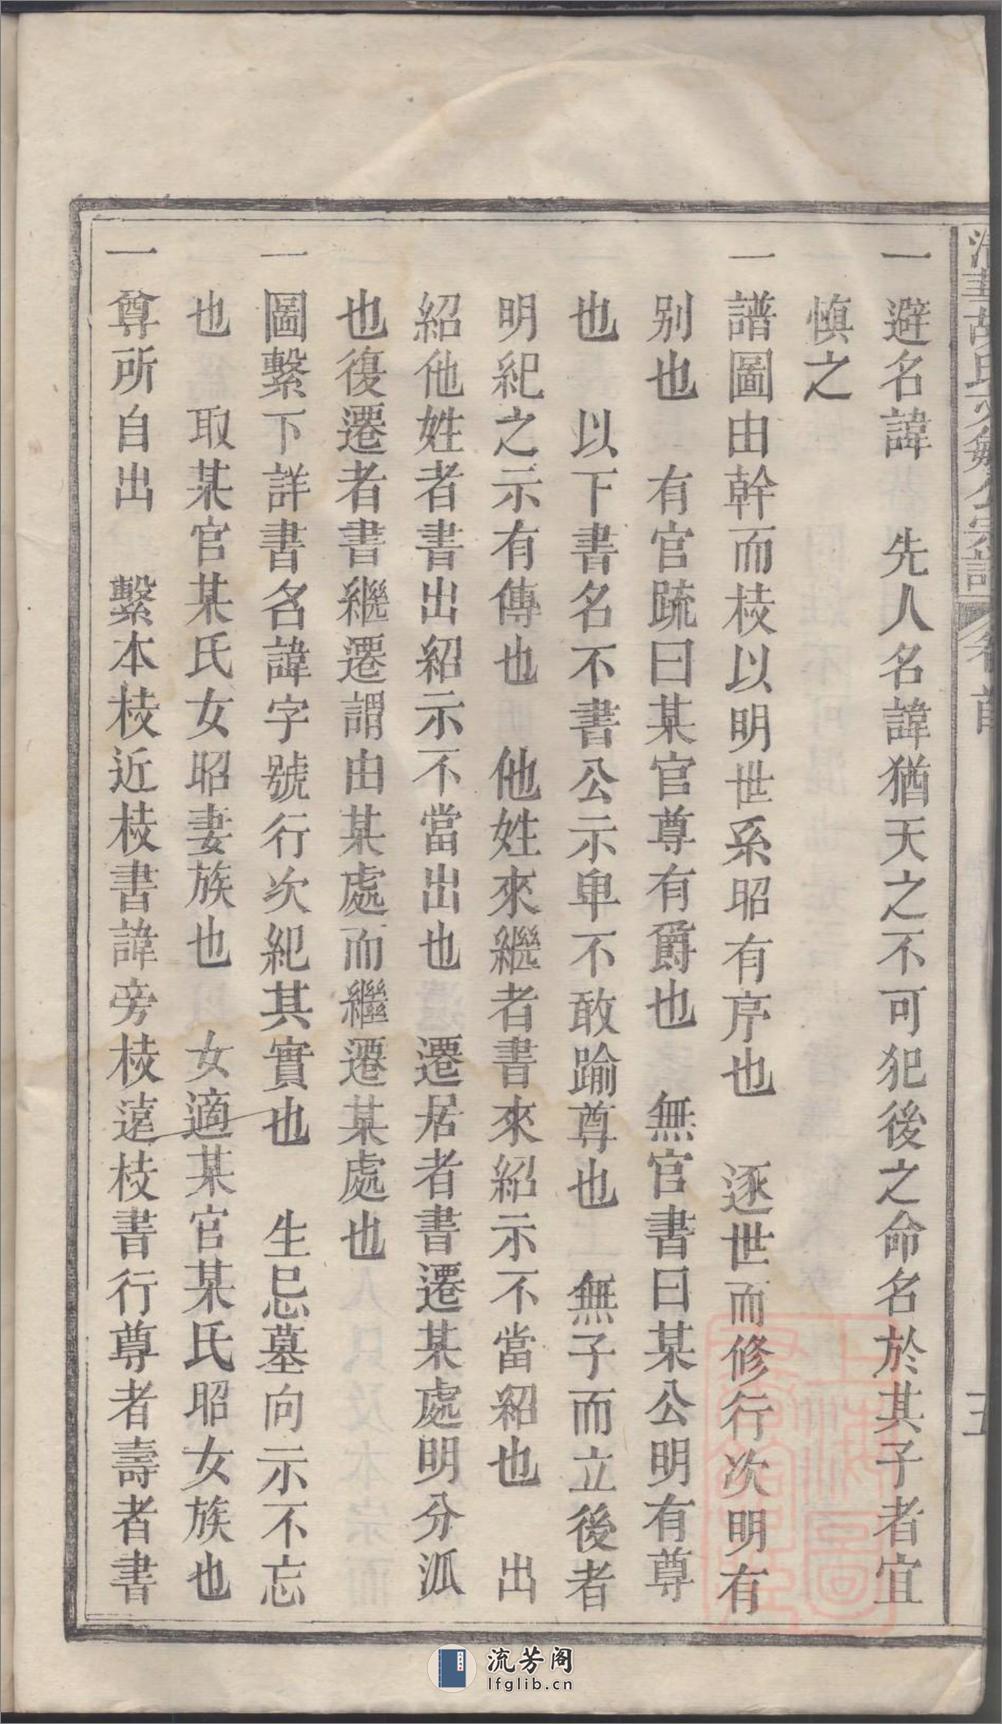 一避名諱　先人名諱猶天之不可犯後之命名於其子者宜
慎之
一譜圖由幹而枝以明世系昭有序也　逐世而修行次明有
別也　有官䟽曰某官尊有爵也　無官書曰某公明有尊
也　以下書名不書公示卑不敢踰尊也　無子而立後者
明紀之示有傳也　他姓來繼者書來紹示不當紹也　出
紹他姓者書出紹示不當出也　遷居者書遷某處明分派
也復遷者書繼遷謂由某處而繼遷某處也
一圖繫下詳書名諱字號行次紀其實也　生忌墓向示不忘
也　取某官某氏女昭妻族也　女適某官某氏昭女族也
一尊所自出　繫本枝近枝書諱旁枝遠枝書行尊者壽者書
流芳阁
lfglib.cn